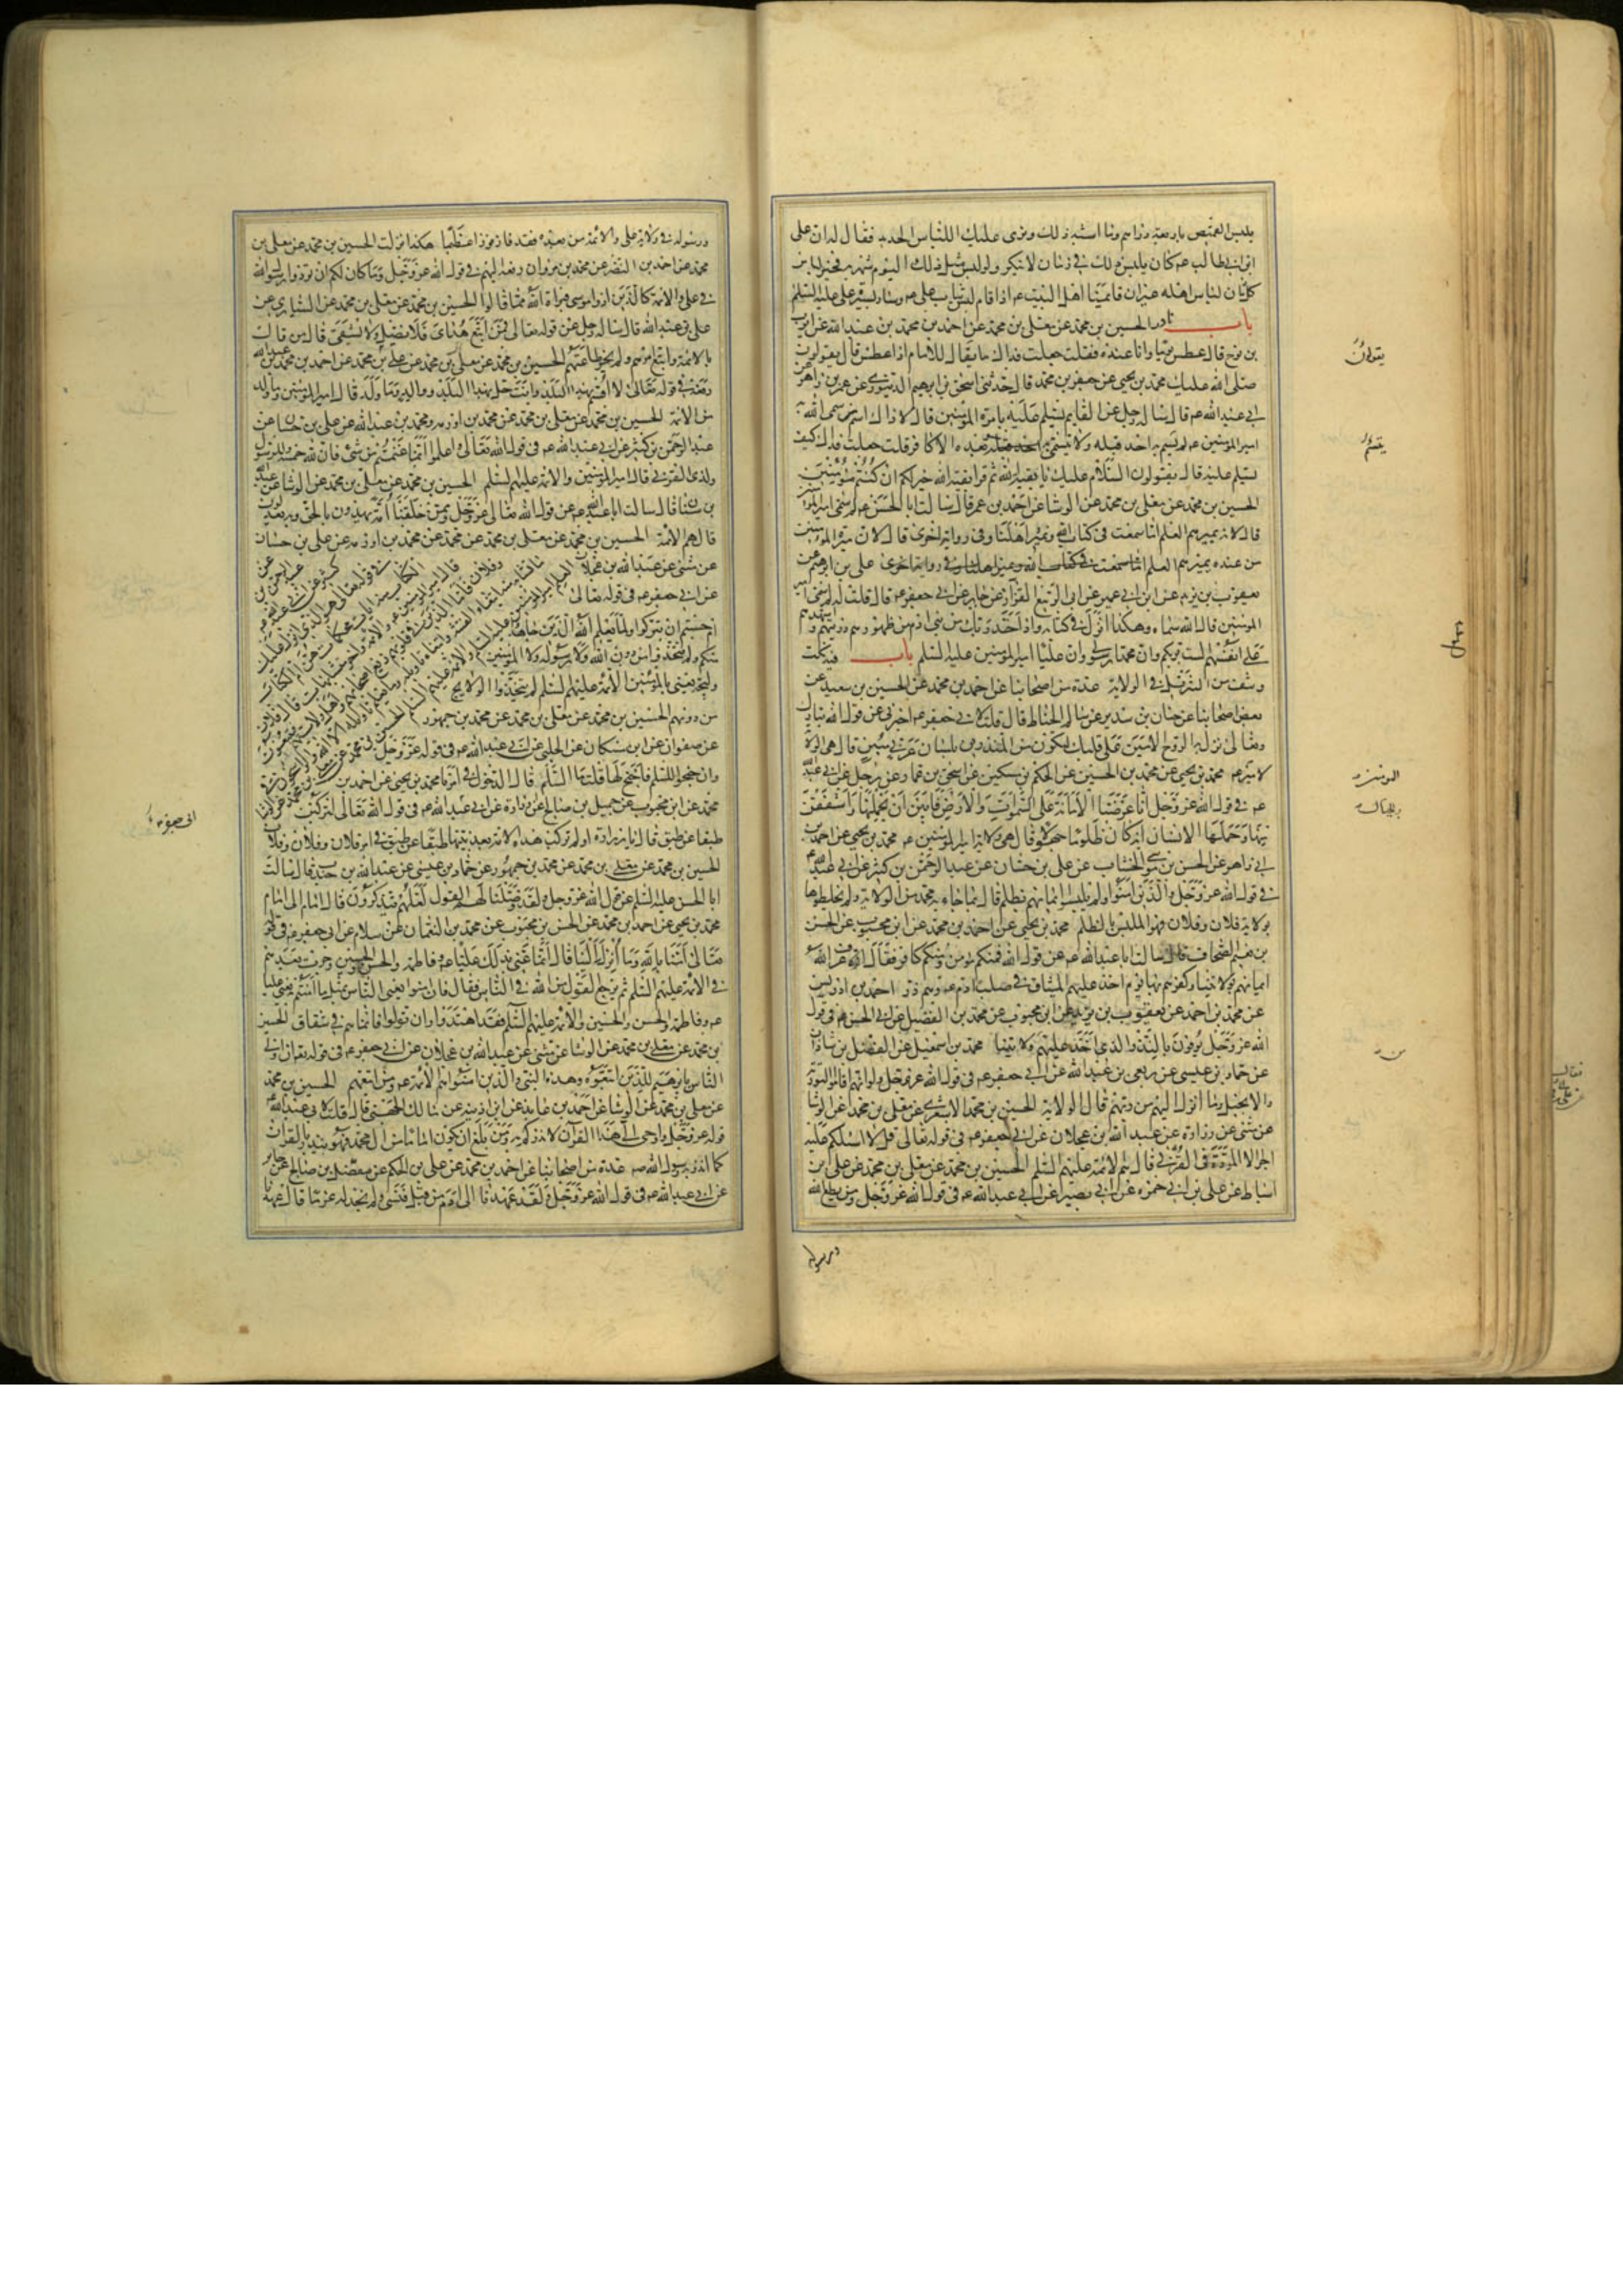 يلبس القميص باربعة دراهم وما اشبه ذلك ونرى عليك اللباس الجديد فقال له ان على
ابن ابي طالب عم كان يلبس ذلك في زمان لا ينكر ولو لبس مثل ذلك اليوم شهر به فخير لباس
كل زمان لباس اهله غير ان قائمنا اهل البيت عم اذا قام لبس ثياب على عم وسار بسيرة على عليه السلم
باب نادر الحسين بن محمد عن معلى بن محمد عن احمد بن محمد بن عبد الله عن ايوب
بن نوح قال عطس يوما وانا عنده فقلت جعلت فداك ما يقال للامام اذا عطس قال يقولون
صلى الله عليك محمد بن يحيى عن جعفر بن محمد قال حدثني اسحق بن ابرهيم الدينوري عن عمر بن زاهر عن
ابي عبد الله عم قال ساله رجل عن القايم يسلم عليه بامرة المؤمنين قال لا ذاك اسم سمى الله به
امير المؤمنين عم لم يسم به احد قبله ولا يتسمى به بعده الا كافر قلت جعلت فداك كيف
يسلم عليه قال يقولون السلام عليك يا بقية الله ثم قرا بقية الله خير لكم ان كنتم مؤمنين
الحسين بن محمد عن معلى بن محمد عن الوشا عن احمد بن عمر قال سالت ابا الحسن عم لم سمى امير المؤمنين
قال لانه يميرهم العلم اما سمعت في كتاب الله ونمير اهلنا وفي رواية اخرى قال لان ميرة المؤمنين
من عنده يميرهم العلم علي بن ابرهيم عن
يعقوب بن يزيد عن ابن ابي عمير عن ابي الربيع القزاز عن جابر عن ابي جعفر عم قال قلت له لم سمى امير
المؤمنين قال الله سماه وهكذا انزل في كتابه واذ اخذ ربك من بني ادم من ظهورهم ذريتهم واشهدهم
على انفسهم الست بربكم وان محمدا رسولي وان عليا امير المؤمنين عليه السلم باب فيه نكت
ونتف من التنزيل في الولاية عدة من اصحابنا عن احمد بن محمد عن الحسين بن سعيد عن
بعض اصحابنا عن حنان بن سدير عن سالم الحناط قال قلت لابي جعفر عم اخبرني عن قول الله تبارك
وتعالى نزل به الروح الامين على قلبك لتكون من المنذرين بلسان عربي مبين قال هي الولاية
لامير عم محمد بن يحيى عن محمد بن الحسين عن الحكم بن مسكين عن اسحق بن عمار عن رجل عن ابي عبد الله
عم في قول الله عز وجل انا عرضنا الامانة على السموات والارض فابين ان يحملنها واشفقن
منها وحملها الانسان انه كان ظلوما جهولا قال هي ولاية امير المؤمنين عم محمد بن يحيى عن احمد بن
ابي زاهر عن الحسن بن موسى الخشاب عن علي بن حسان عن عبد الرحمن بن كثير عن ابي عبد الله عم
في قول الله عز وجل والذين امنوا ولم يلبسوا ايمانهم بظلم قال بما جاء به محمد من الولاية ولم يخلطوها
بولاية فلان وفلان فهو الملبس بالظلم محمد بن يحيى عن احمد بن محمد عن ابن محبوب عن الحسين
بن نعيم الصحاف قال سالت ابا عبد الله عم عن قول الله فمنكم مؤمن ومنكم كافر فقال عرف الله
ايمانهم بولايتنا وكفرهم بها يوم اخذ عليهم الميثاق في صلب ادم عم وهم ذر احمد بن ادريس
عن محمد بن احمد عن يعقوب بن يزيد عن ابن محبوب عن محمد بن الفضيل عن ابي الحسن عم في قول
الله عز وجل يوفون بالنذر الذي اخذ عليهم ولايتنا محمد بن اسمعيل عن الفضل بن شاذان
عن حماد بن عيسى عن ربعي بن عبد الله عن ابي جعفر عم في قول الله عز وجل ولو انهم اقاموا التورية
والانجيل وما انزل اليهم من ربهم قال الولاية الحسين بن محمد الاشعري عن معلى بن محمد عن الوشا
عن مثنى عن زرارة عن عبد الله بن عجلان عن ابي جعفر عم في قوله تعالى قل لا اسئلكم عليه
اجرا الا المودة في القربى قال هم الائمة عليهم السلم الحسين بن محمد عن معلى بن محمد عن علي بن
اسباط عن علي بن ابي حمزة عن ابي بصير عن ابي عبد الله عم في قول الله عز وجل ومن يطع الله
ورسوله
ورسوله في ولاية على والائمة من بعده فقد فاز فوزا عظيما هكذا نزلت الحسين بن محمد عن معلى بن
محمد عن احمد بن النضر عن محمد بن مروان رفعه اليهم في قول الله عز وجل وما كان لكم ان تؤذوا رسول الله
في علي والائمة كالذين اذوا موسى فبراه الله مما قالوا الحسين بن محمد عن معلى بن محمد عن السياري عن
علي بن عبد الله قال ساله رجل عن قوله تعالى فمن اتبع هداي فلا يضل ولا يشقى قال من قال
بالائمة واتبع امرهم ولم يجز طاعتهم الحسين بن محمد عن معلى بن محمد عن احمد بن محمد بن عبد الله
رفعه في قوله تعالى لا اقسم بهذا البلد وانت حل بهذا البلد ووالد وما ولد قال امير المؤمنين وما ولد
من الائمة الحسين بن محمد عن معلى بن محمد عن محمد بن اورمه ومحمد بن عبد الله عن علي بن حسان عن
عبد الرحمن بن كثير عن ابي عبد الله عم في قول الله تعالى واعلموا انما غنمتم من شئ فان لله خمسه وللرسول
ولذي القربى قال امير المؤمنين والائمة عليهم السلم الحسين بن محمد عن معلى بن محمد عن الوشا عن عبد الله
بن سنان قال سالت ابا عبد الله عم عن قول الله تعالى عز وجل وممن خلقنا امة يهدون بالحق وبه يعدلون
قال هم الائمة الحسين بن محمد عن معلى بن محمد عن محمد بن اورمه عن علي بن حسان
عن عبد الرحمن بن
كثير عن ابي عبد الله عم
في قوله تعالى هو الذي انزل عليك
الكتاب منه ايات محكمات هن ام الكتاب
قال امير المؤمنين عم والائمة واخر متشابهات قال فلان
وفلان فاما الذين في قلوبهم زيغ اصحابهم واهل ولايتهم فيتبعون
ما تشابه منه ابتغاء الفتنة وابتغاء تاويله وما يعلم تاويله الا الله والراسخون في العلم
امير المؤمنين عليه السلم والائمة عليهم السلم الحسين بن محمد عن معلى بن محمد عن الوشا
عن مثنى عن عبد الله بن عجلان
عن ابي جعفر عم في قوله تعالى
ام حسبتم ان تتركوا ولما يعلم الله الذين جاهدوا
منكم ولم يتخذوا من دون الله ولا رسوله ولا المؤمنين
وليجة يعني بالمؤمنين الائمة عليهم السلم لم يتخذوا الولايج
من دونهم الحسين بن محمد عن معلى بن محمد عن محمد بن جمهور
عن صفوان عن ابن مسكان عن الحلبي عن ابي عبد الله عم في قوله عز وجل
وان جنحوا للسلم فاجنح لها قلت ما السلم قال الدخول في امرنا محمد بن يحيى عن احمد بن
محمد عن ابن محبوب عن جميل بن صالح عن زرارة عن ابي عبد الله عم في قول الله تعالى لتركبن
طبقا عن طبق قال يا زرارة اولم تركب هذه الامة بعد نبيها طبقا عن طبق في امر فلان وفلان وفلان
الحسين بن محمد عن معلى بن محمد عن محمد بن جمهور عن حماد بن عيسى عن عبد الله بن جندب قال سالت
ابا الحسن عليه السلم عن قول الله عز وجل ولقد وصلنا لهم القول لعلهم يتذكرون قال امام الى امام
محمد بن يحيى عن احمد بن محمد عن الحسن بن محبوب عن محمد بن النعمان عن سلام عن ابي جعفر عم في قوله
تعالى امنا بالله وما انزل الينا قال انما عنى بذلك عليا عم وفاطمة والحسن والحسين وجرت بعدهم
في الائمة عليهم السلم ثم يرجع القول من الله في الناس فقال فان امنوا يعني الناس بمثل ما امنتم يعني عليا
عم وفاطمة والحسن والحسين والائمة عليهم السلم فقد اهتدوا وان تولوا فانما هم في شقاق الحسين
بن محمد عن معلى بن محمد عن الوشا عن مثنى عن عبد الله بن عجلان عن ابي جعفر عم في قوله تعالى ان اولى
الناس بابرهيم للذين اتبعوه وهذا النبي والذين امنوا هم الائمة عم ومن اتبعهم الحسين بن محمد
عن معلى بن محمد عن الوشا عن احمد بن عايذ عن ابن اذينة عن مالك الجهني قال قلت لابي عبد الله عم
قوله عز وجل واوحى الى هذا القران لانذركم به ومن بلغ ان يكون اماما من ال محمد فهو ينذر بالقران
كما انذر رسول الله صه عدة من اصحابنا عن احمد بن محمد عن علي بن الحكم عن مفضل بن صالح عن جابر
عن ابي عبد الله عم في قول الله عز وجل ولقد عهدنا الى ادم من قبل فنسى ولم نجد له عزما قال عهدنا